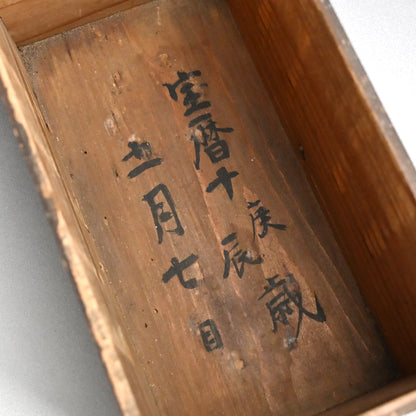 宝暦十庚辰歳
十一月七日